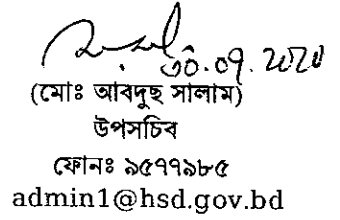 ৩০.০৭.২০২০
(মোঃ আবদুছ সালাম)
উপসচিব
ফোনঃ ৯৫৭৭৯৮৫
admin1@hsd.gov.bd